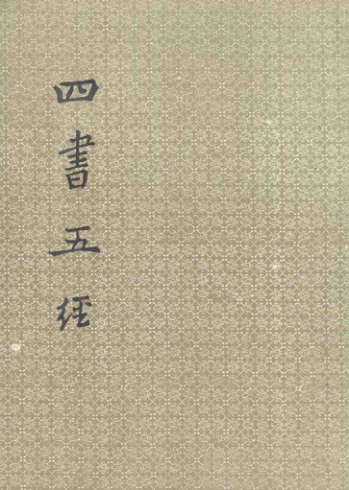 四書五经